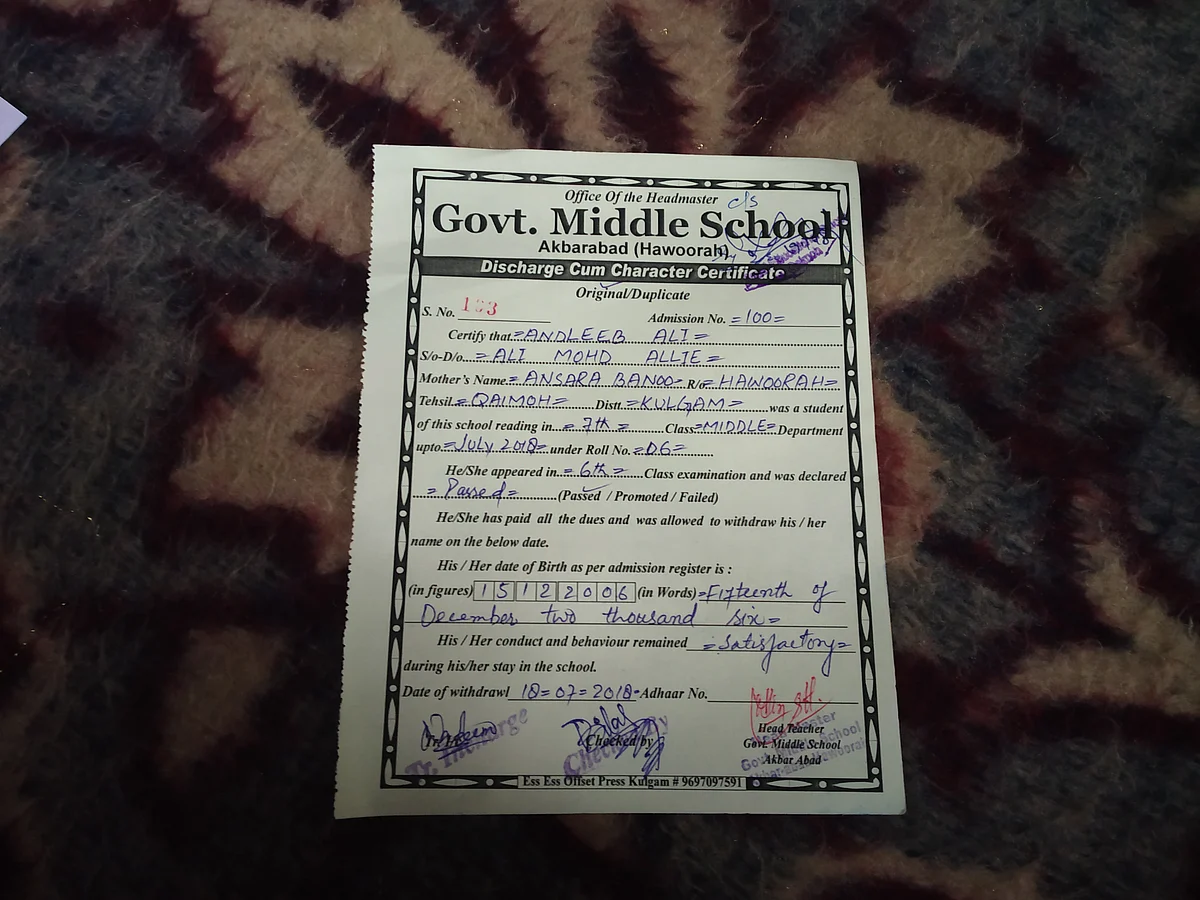 Office Of the Headmaster
c/s
Govt. Middle School
Akbarabad (Hawoorah)
Discharge Cum Character Certificate
Original/Duplicate
S. No. 193 Admission No. =100=
Certify that =ANDLEEB ALI=
S/o-D/o. =ALI MOHD ALLIE=
Mother's Name =ANSARA BANOO- R/o =HAWOORAH=
Tehsil =QAIMOH= Distt. =KULGAM= was a student
of this school reading in =7th= Class =MIDDLE= Department
upto =JULY 2018= under Roll No. =06=
He/She appeared in =6th= Class examination and was declared
=Passed= (Passed / Promoted / Failed)
He/She has paid all the dues and was allowed to withdraw his / her
name on the below date.
His / Her date of Birth as per admission register is :
(in figures) 15122006 (in Words) =Fifteenth of
December two thousand six=
His / Her conduct and behaviour remained =Satisfactory=
during his/her stay in the school.
Date of withdrawl 18=07=2018- Adhaar No.
Tr. Incharge
Checked by
Head Teacher
Govt. Middle School
Akbar Abad
Ess Ess Offset Press Kulgam # 9697097591